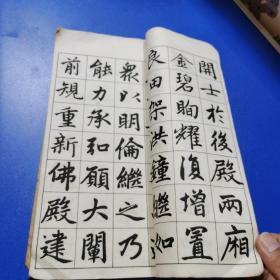 開士於後殿兩廂
金碧眴耀復增置
良田架洪鐘繼以
眾以明倫繼之乃
能力承和願大闡
前規重新佛殿建